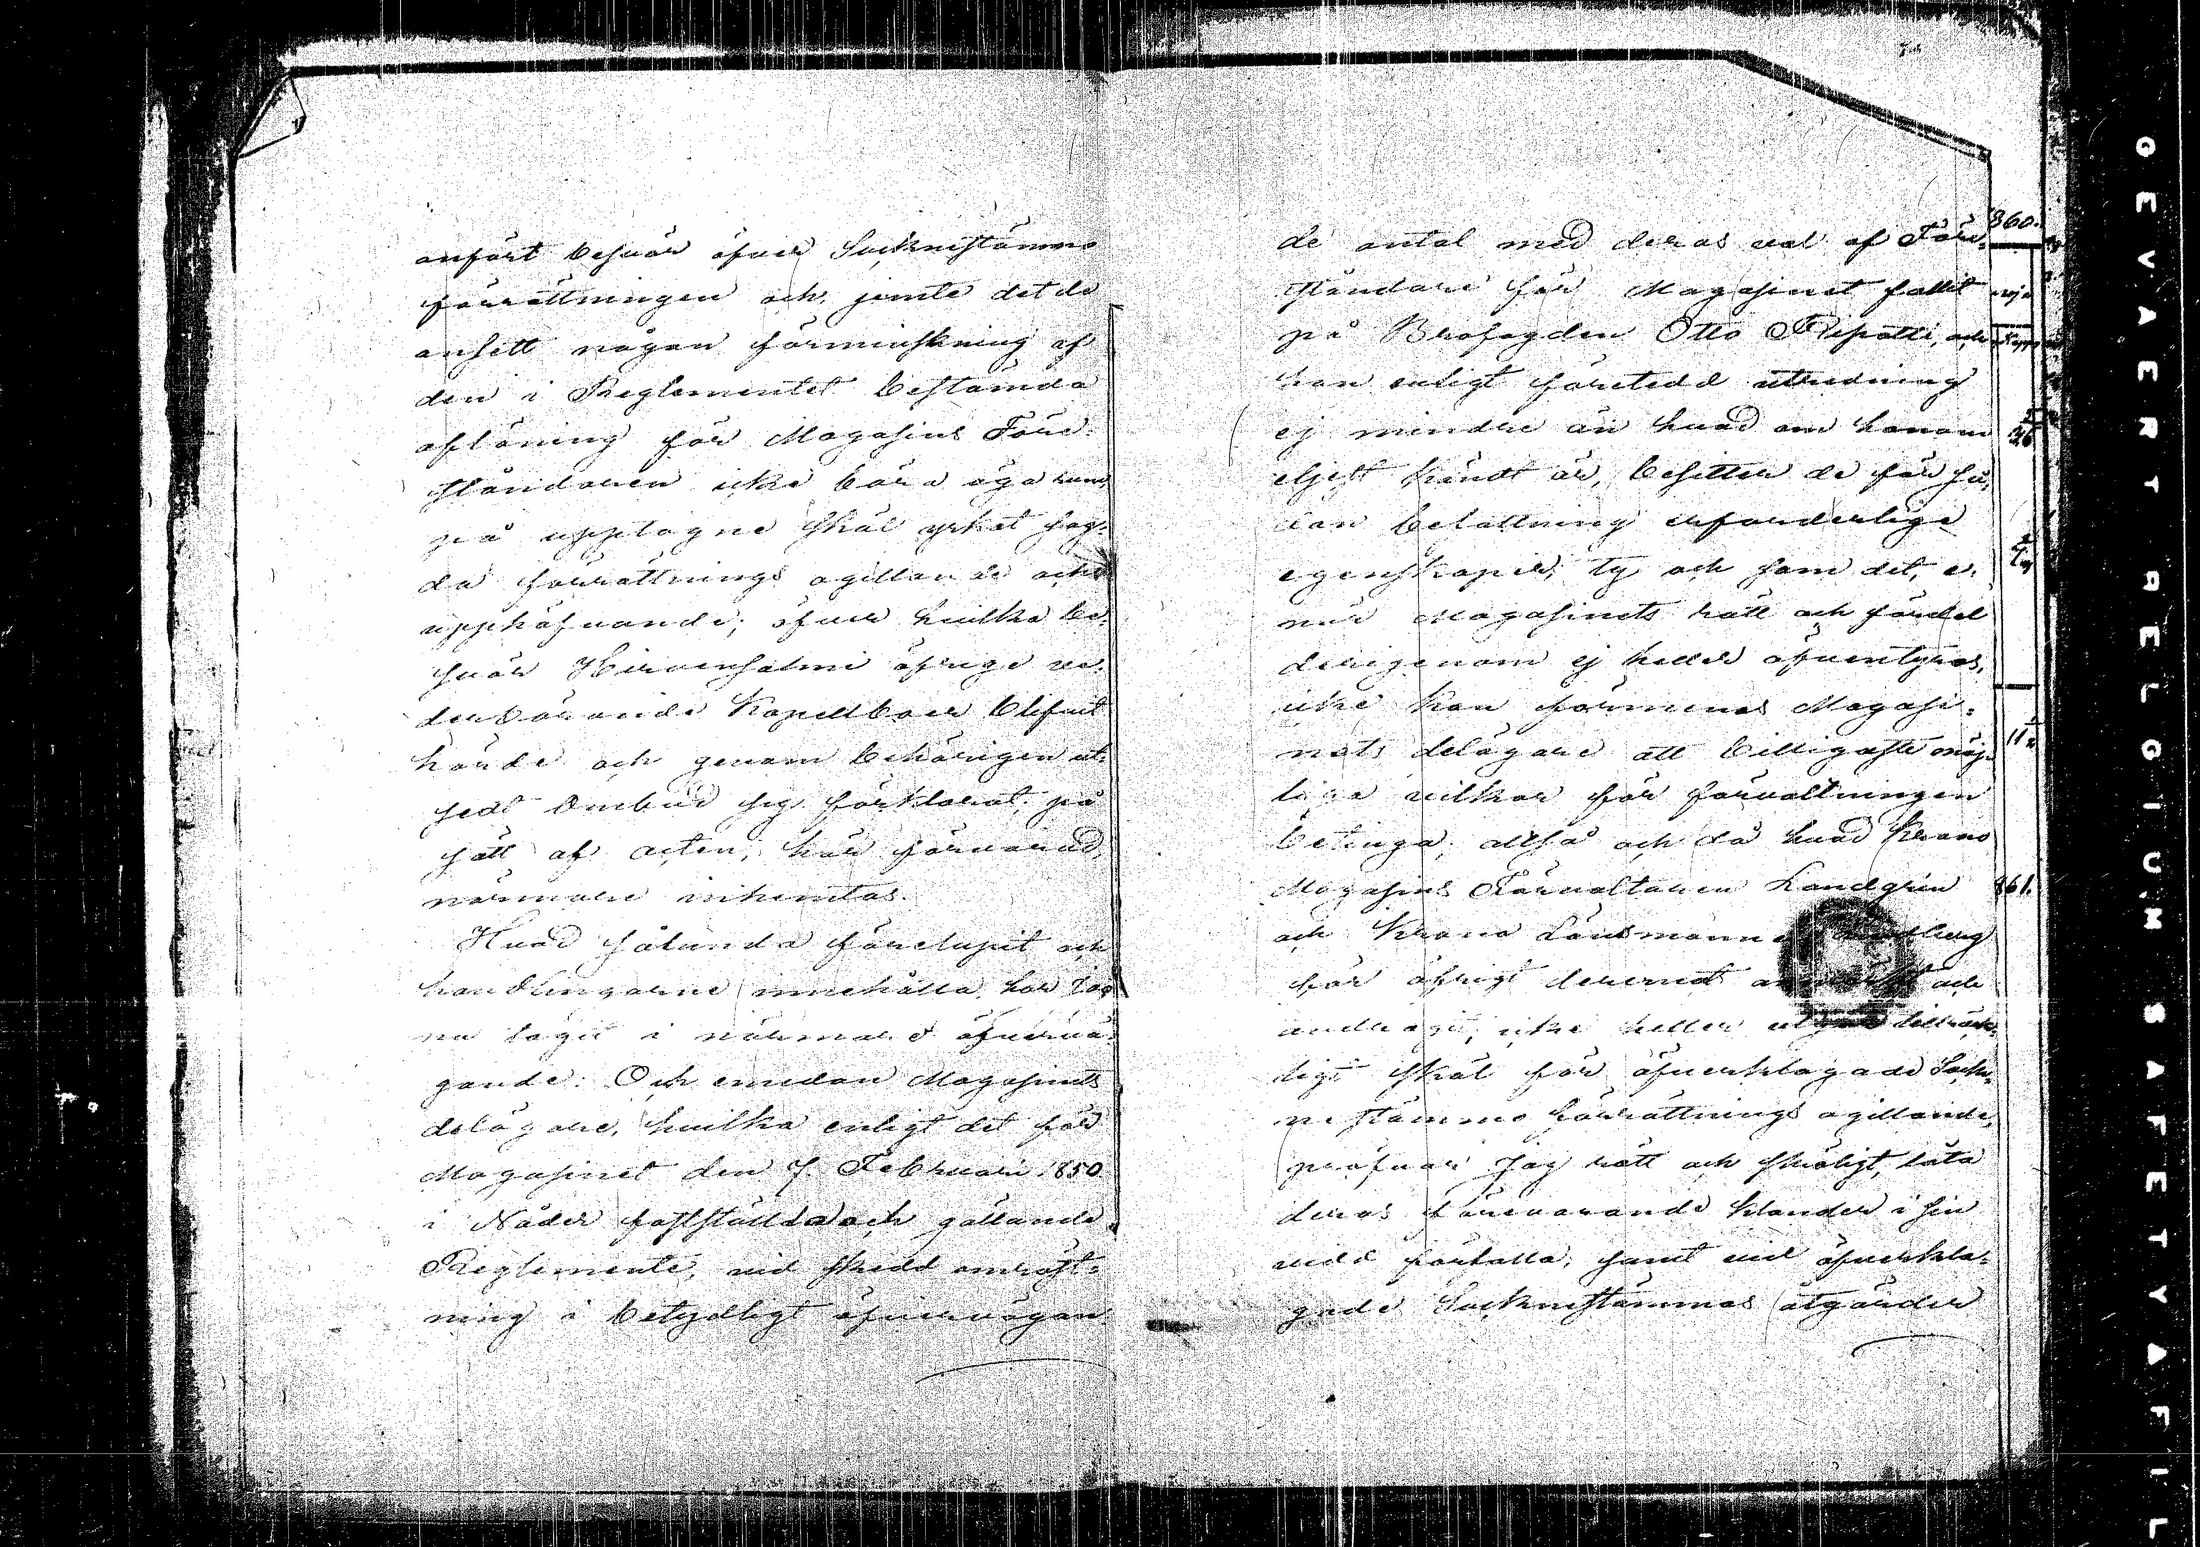 anfört besvär öfver Sockenstämmo
förrättningen och, jemte det de
ansett någon förminskning af
den i Reglementet bestämda
aflöning för Magasins Före-
ståndaren icke böra äga rum,
på upptagne skäl yrkat sag-
da förrättnings ogillande och
upphäfvande; öfver hvilka be-
svär Hirvensalmi öfrige ve-
derbörande Kapellboer blifvit
hörde och genom behörigen ut-
sedt Ombud sig förklarat, på
sätt af acten, här förvarad,
närmare inhemtas.
Hvad sålunda förelupit och
handlingarne innehålla har Jag
nu tagit i närmare öfvervä-
gande: Och emedan Magasinets
delägare, hvilka enligt det för
Magasinet den 7 Februari 1850
i Nåder fastställda och gällande
Reglemente, vid skedd omröst-
ning i betydligt öfvervägan-
de antal med deras val af Före-
ståndare för Magasinet fallit
på Brofogden Otto Ripatti, och
han enligt företedd utredning
ej mindre än hvad om honom
eljest kändt är, besitter de för så-
dan befattning erforderlige
egenskaper, ty och som det, e-
när Magasinets rätt och fördel
derigenom ej heller äfventyras,
icke kan förmenas Magasi-
nets delägare att billigaste möj-
liga vilkor för förvaltningen
betinga, alltså och då hvad Krono
Magasins Förvaltaren Landgrén
och Krono Länsmannen
för öfrigt deremot och
andragit, icke heller utgör tillräck-
ligt skäl för öfverklagade Socke-
nestämmo förrättnings ogillande,
pröfvar Jag rätt och skäligt, låta
deras förevarande klander i sin
vidd förfalla, samt vid öfverkla-
gade Sockenstämmas åtgärder
860.
861.
GEVAERT BELGIUM SAFETY FIL